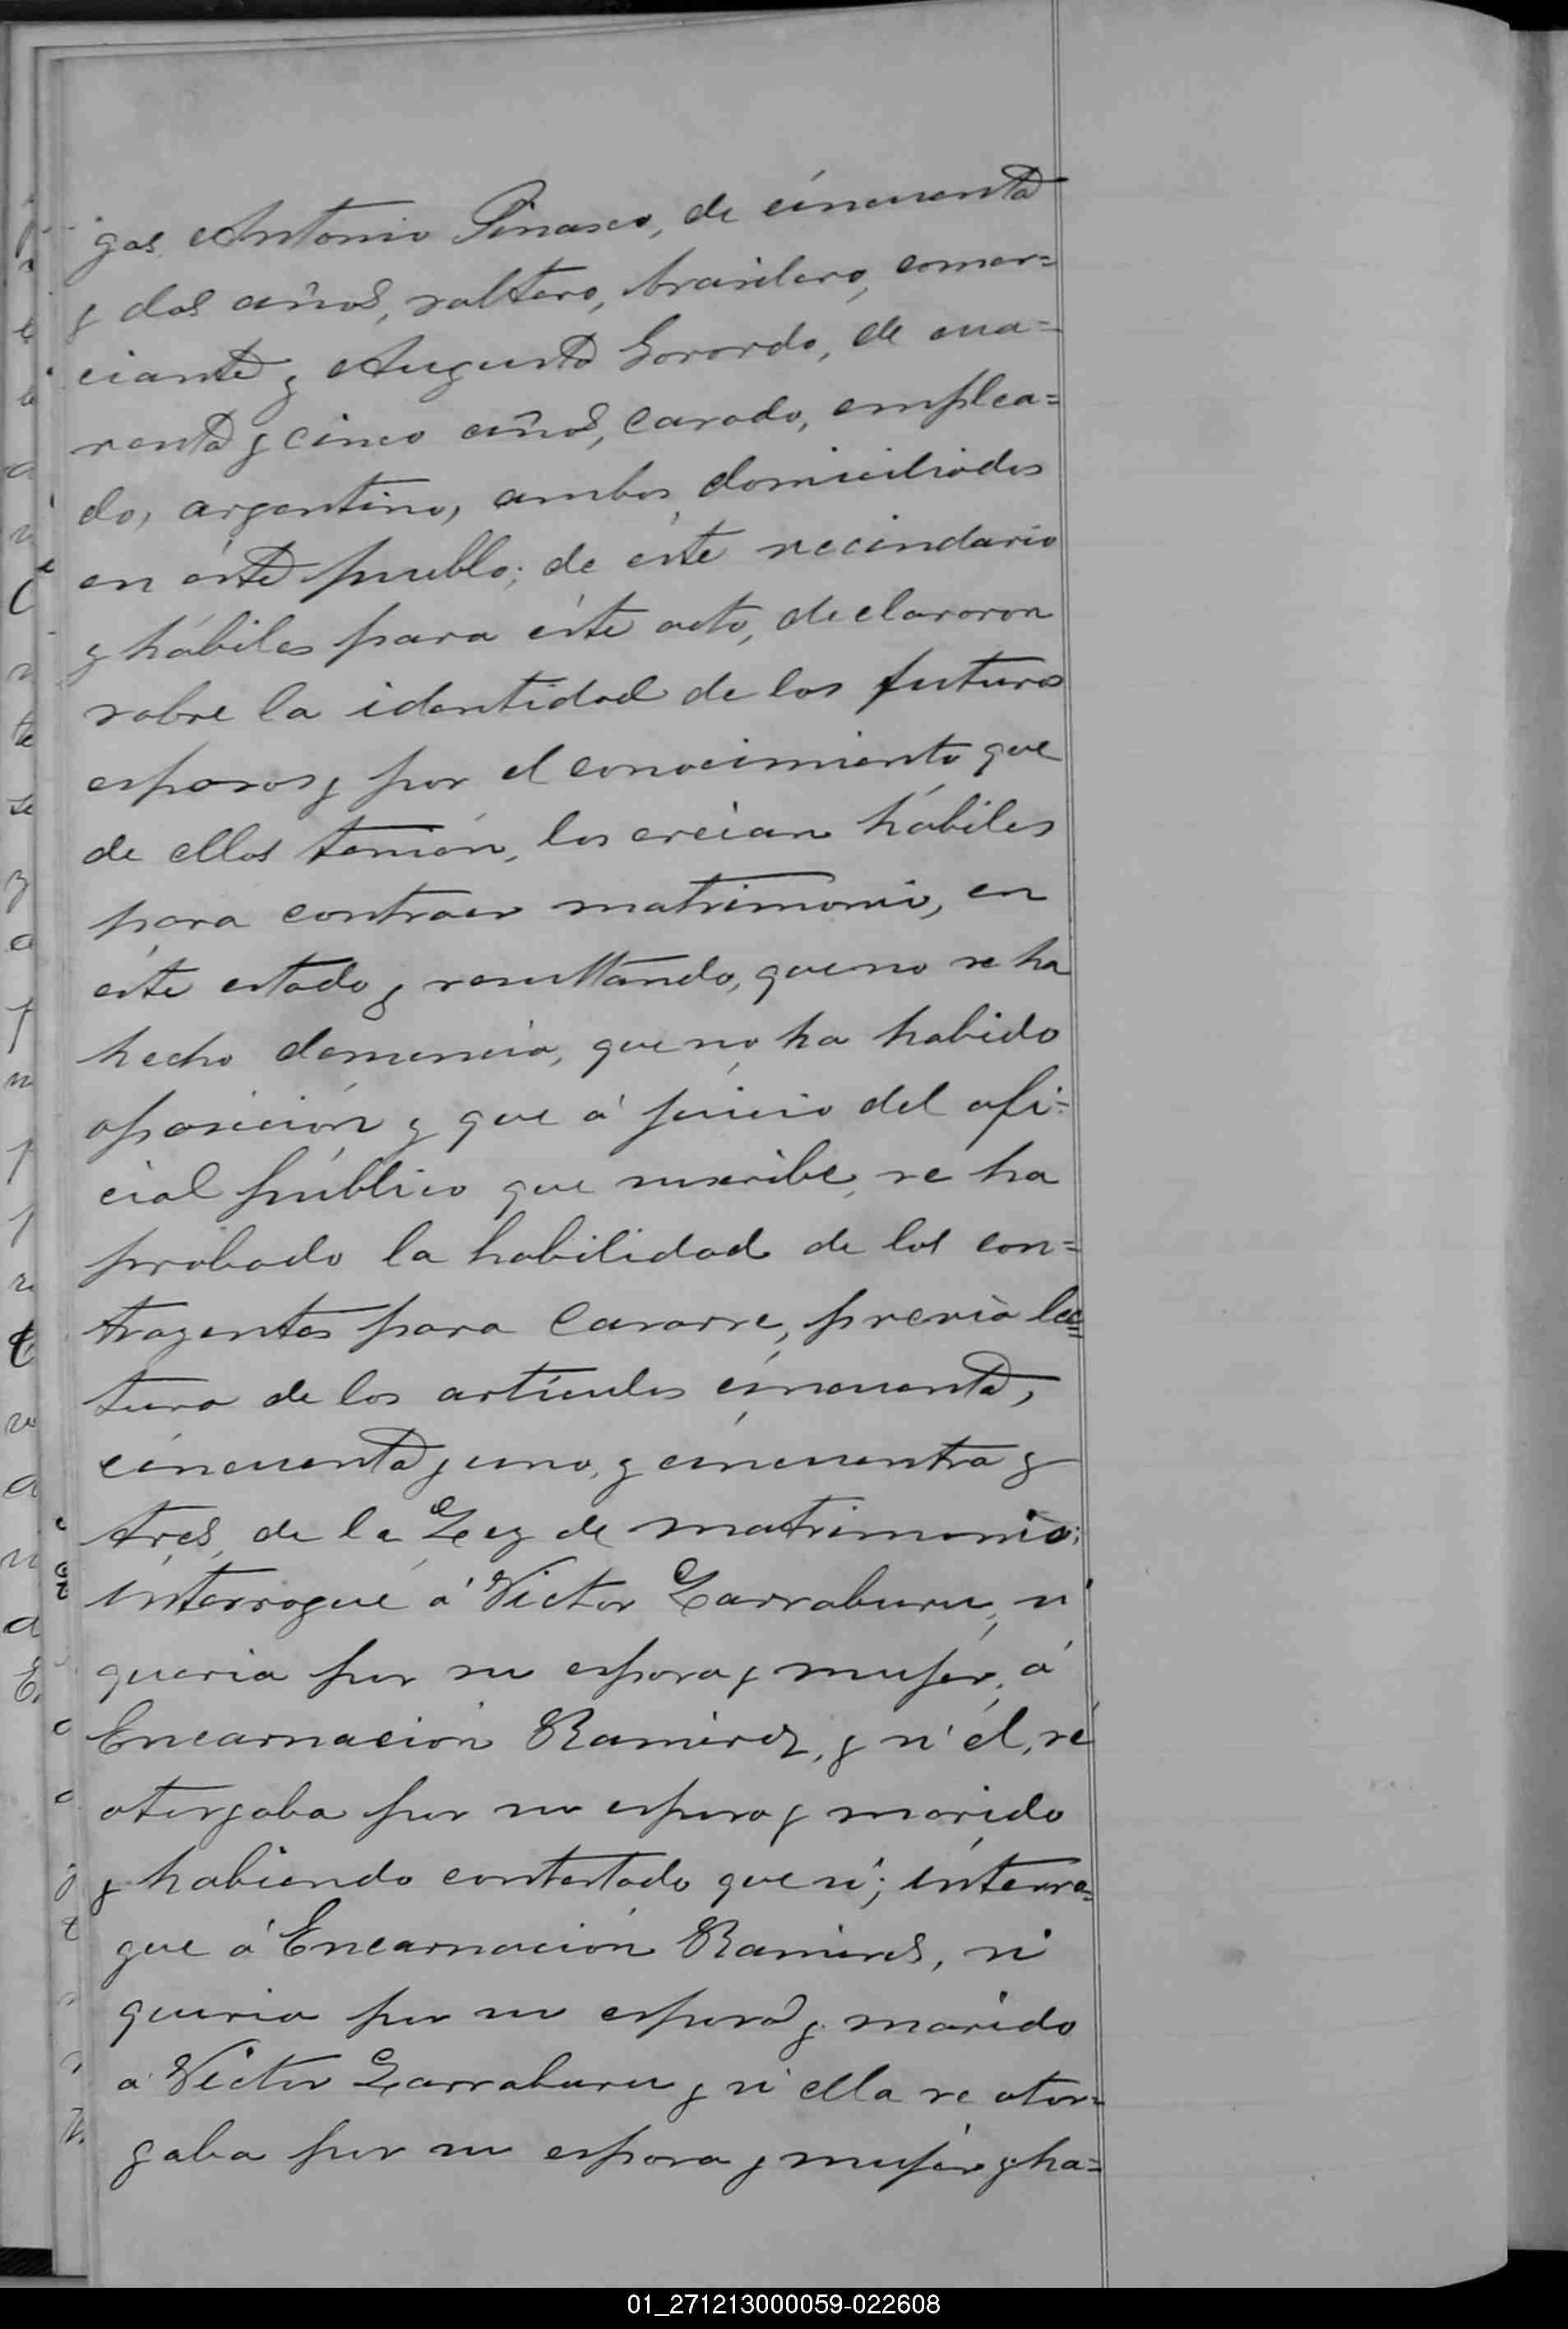 gos, Antonio Pinasco, de cincuenta
y dos años, soltero, brasilero, comer=
ciante y Augusto Gorordo, de cua=
renta y cinco años, casado, emplea=
do, argentino, ambos domiciliados
en éste pueblo; de éste vecindario
y hábiles para éste acto, declararon
sobre la identidad de los futuros
esposos y por el conocimiento que
de ellos tenían, los creían hábiles
para contraer matrimonio, en
éste estado y resultando, que no se ha
hecho denuncia, que no ha habido
oposición y que á juicio del ofi=
cial público que suscribe, se ha
probado la habilidad de los con=
trayentes para casarse, previa lec=
tura de los artículos cincuenta,
cincuenta y uno, y cincuenta y
tres, de la Ley de matrimonio;
interrogué á Victor Larraburu, si
queria por su esposa y mujer, á
Encarnación Ramirez, y si él, se
otorgaba por su esposo y marido
y habiendo contestado que si; interro=
gué á Encarnación Ramires, si
queria por su esposo y marido
á Victor Larraburu y si ella se otor=
gaba por su esposa y mujer y ha=
01_271213000059-022608